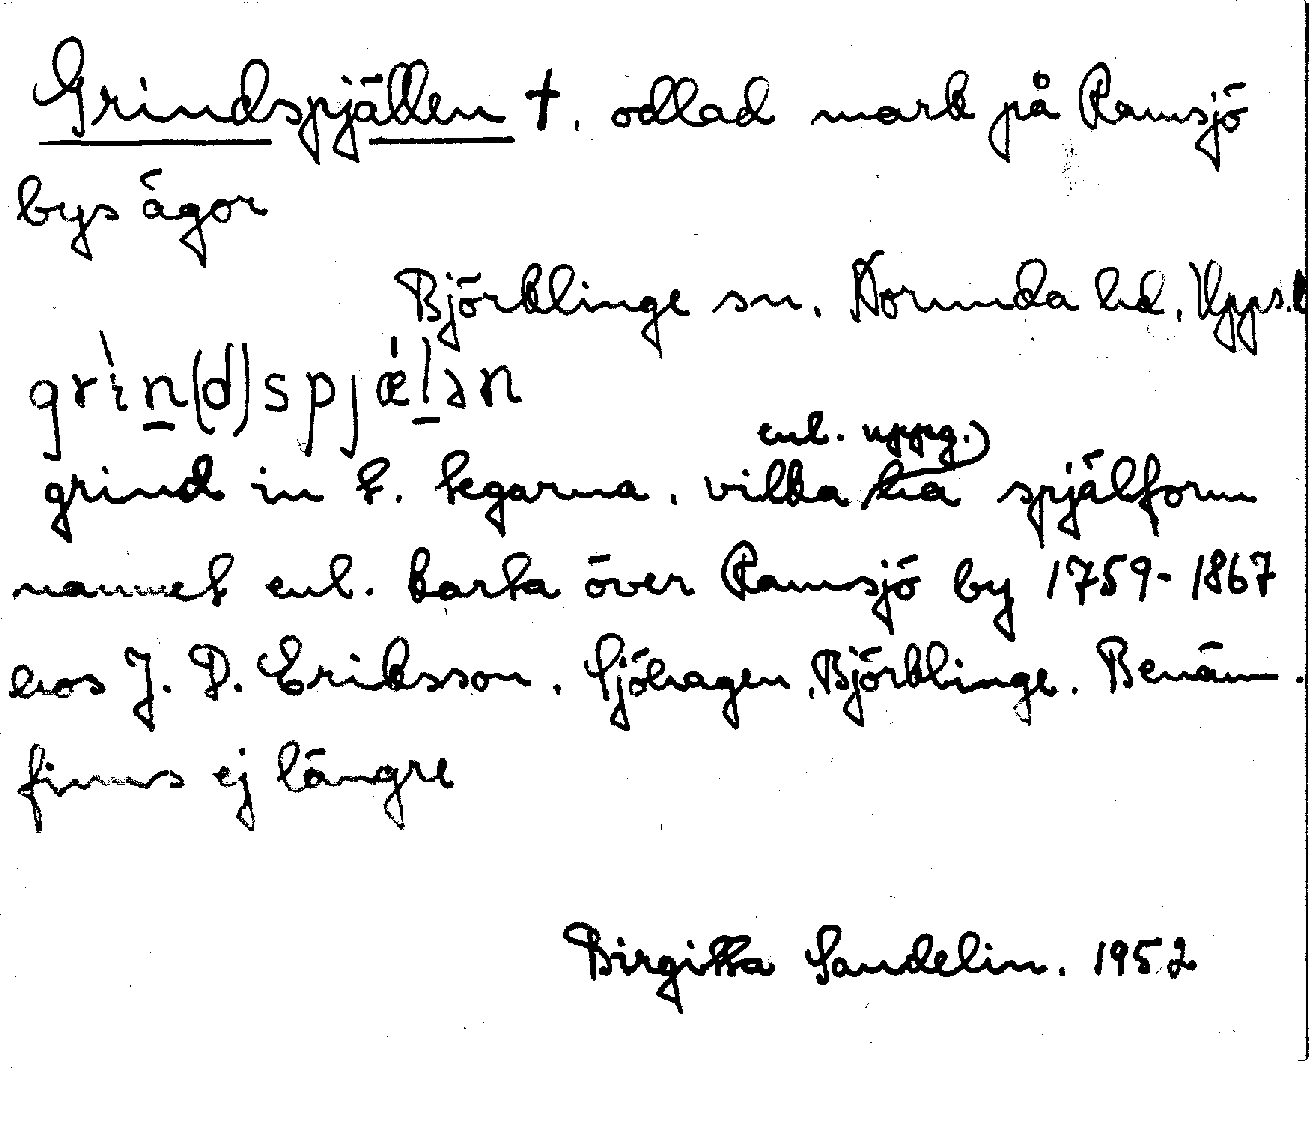 Grindspjällen †, odlad mark på Ramsjö
bys ägor
Björklinge sn, Norunda hd, Upps.l
grìn(d)spjæ̍lən
enl. uppg.
grind in t. tegarna, vilka ha spjälform
namnet enl. karta över Ramsjö by 1759-1867
hos J. P. Eriksson, Sjöhagen, Björklinge. Benämn.
finns ej längre
Birgitta Sandelin. 1952